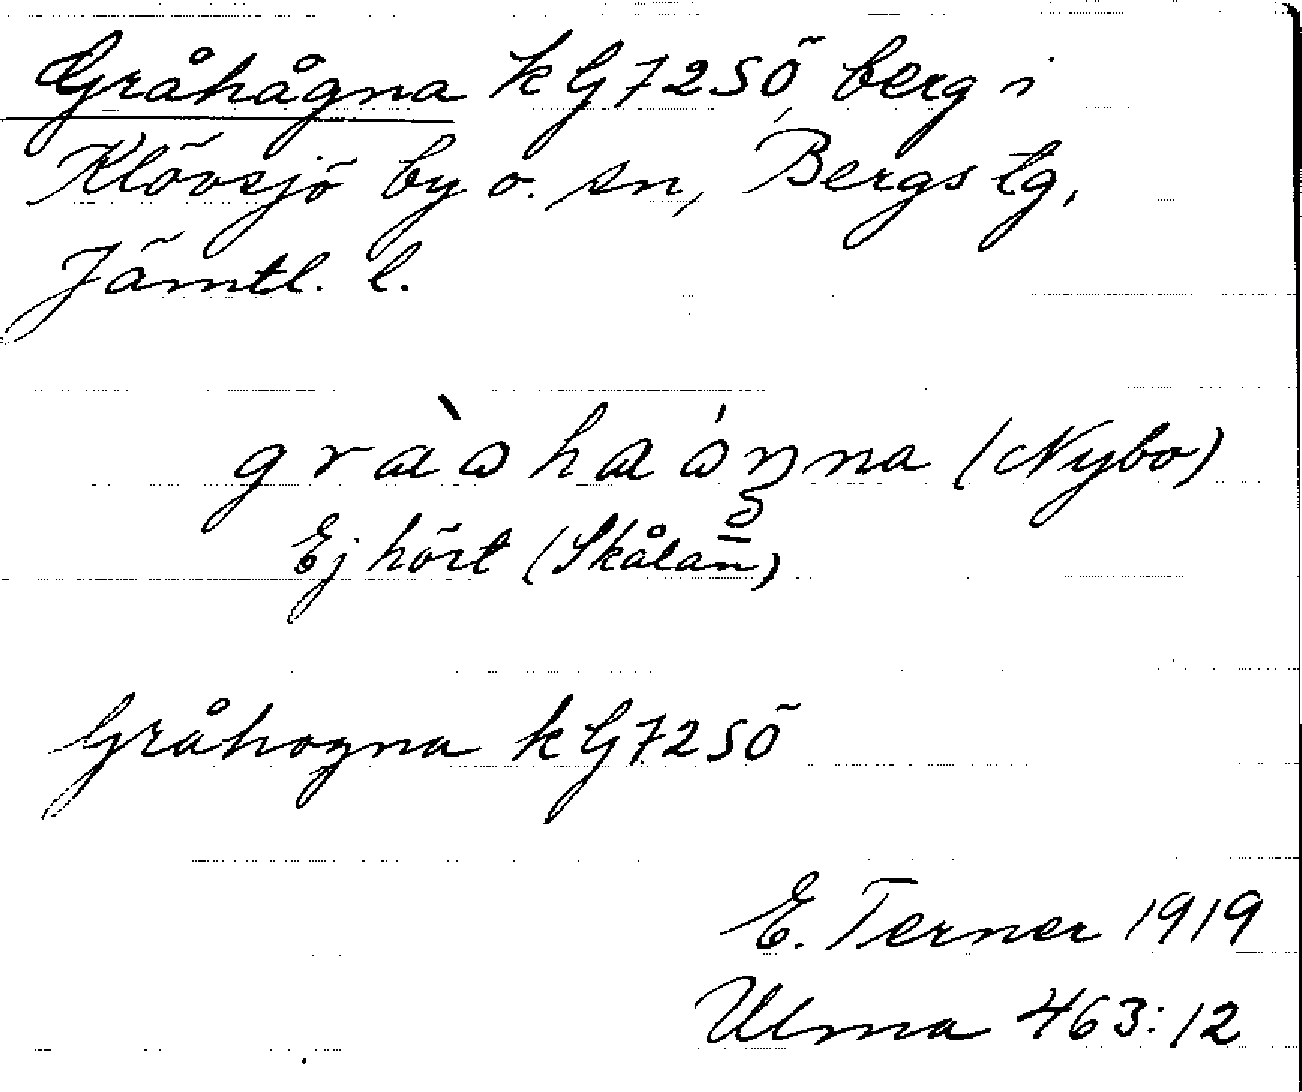 Gråhågna kG72SÖ, berg i
Klövsjö by o. sn, Bergs tg,
Jämtl. l.
gràshaŋna (Nybo)
Ej hört (Skålan)
Gråhogna kG72SÖ
E. Terner 1919
Ulma 463:12